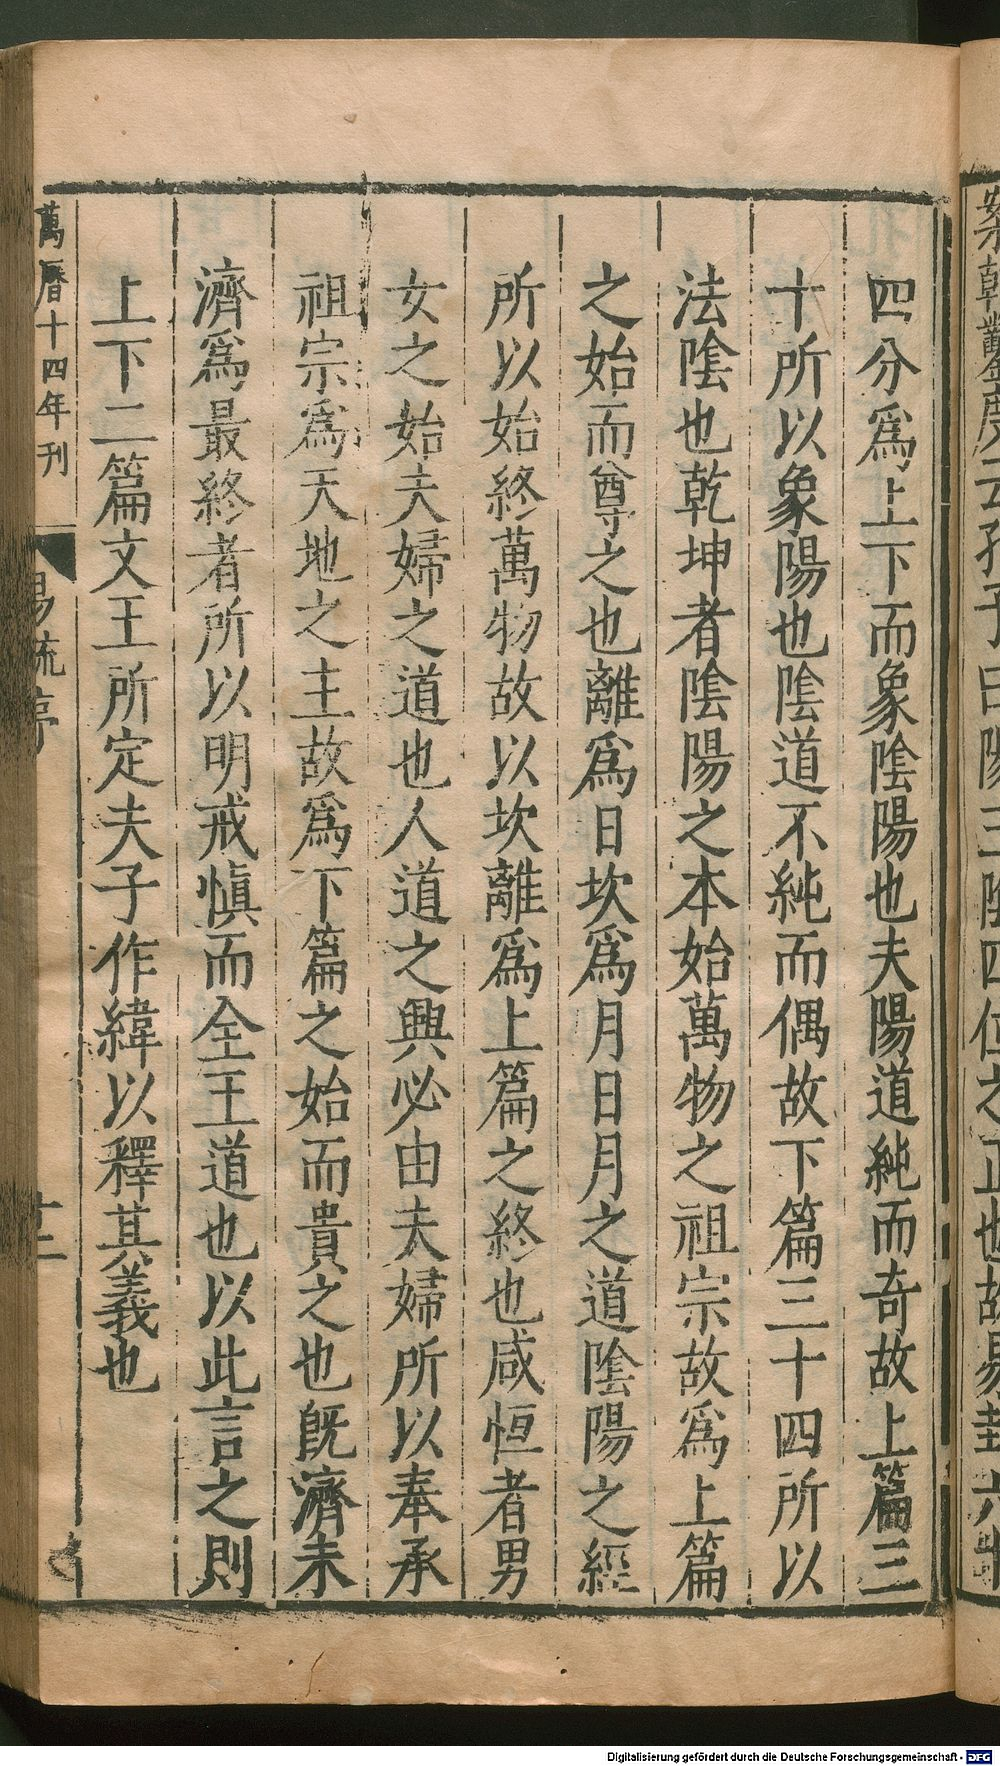 案乾鑿度云孔子曰陽三陰四位之正也故易卦六十
四分爲上下而象陰陽也夫陽道純而奇故上篇三
十所以象陽也陰道不純而偶故下篇三十四所以
法陰也乾坤者陰陽之本始萬物之祖宗故爲上篇
之始而尊之也離爲日坎爲月日月之道陰陽之經
所以始終萬物故以坎離爲上篇之終也咸恒者男
女之始夫婦之道也人道之興必由夫婦所以奉承
祖宗爲天地之主故爲下篇之始而貴之也既濟未
濟爲最終者所以明戒慎而全王道也以此言之則
上下二篇文王所定夫子作緯以釋其義也
萬曆十四年刊
易疏序
十二
Digitalisierung gefördert durch die Deutsche Forschungsgemeinschaft - DFG